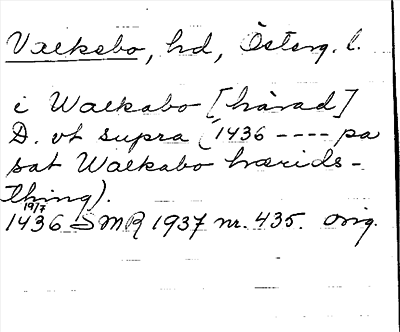 Valkabo, hd, Österg. l.
i Walkabo [härad]
D. vt supra (1436 ---- pa
sat Walkabo hærids-
thing).
19/7
1436 SMR 1937 nr. 435. orig.